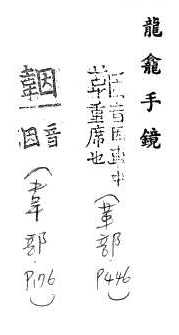 龍龕手鏡
鞇音因車中
重席也
(革部 P446)
音
因
(韋部 P176)